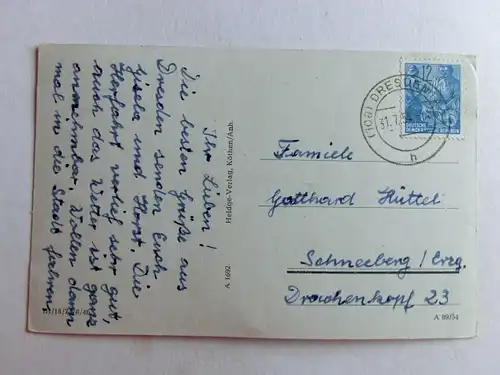 Ihr Lieben!
Die besten Grüße aus
Dresden senden Euch
Gisela und Horst. Die
Herfahrt verlief sehr gut,
auch das Wetter ist ganz
annehmbar. Wollen dann
mal in die Stadt fahren.
A 1692 Heldge-Verlag, Köthen/Anh.
(10a) DRESDEN
31.7.
h
12
DEUTSCHE
DEMOKRATISCHE REPUBLIK
Familie
Gotthard Hüttel
Schneeberg / Erzg.
Drachenkopf 23
A 89/54